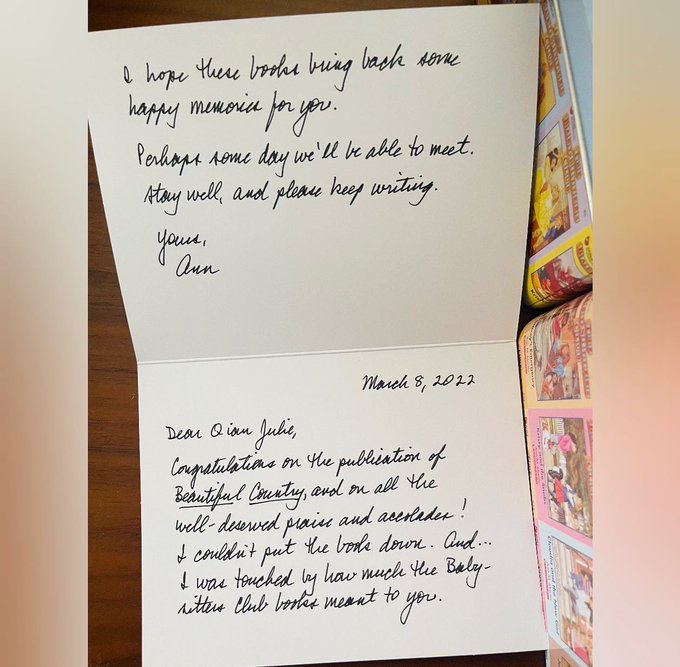 March 8, 2022
Dear Qian Julie,
Congratulations on the publication of
Beautiful Country, and on all the
well-deserved praise and accolades!
I couldn't put the book down. And...
I was touched by how much the Baby-
sitters Club books meant to you.
I hope these books bring back some
happy memories for you.
Perhaps some day we'll be able to meet.
Stay well, and please keep writing.
Yours,
Ann